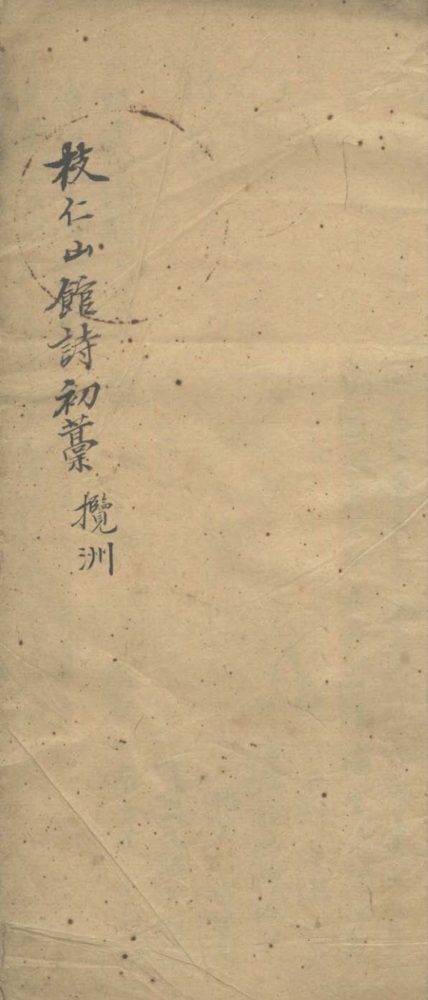 枝仁山館詩初藁 攬洲